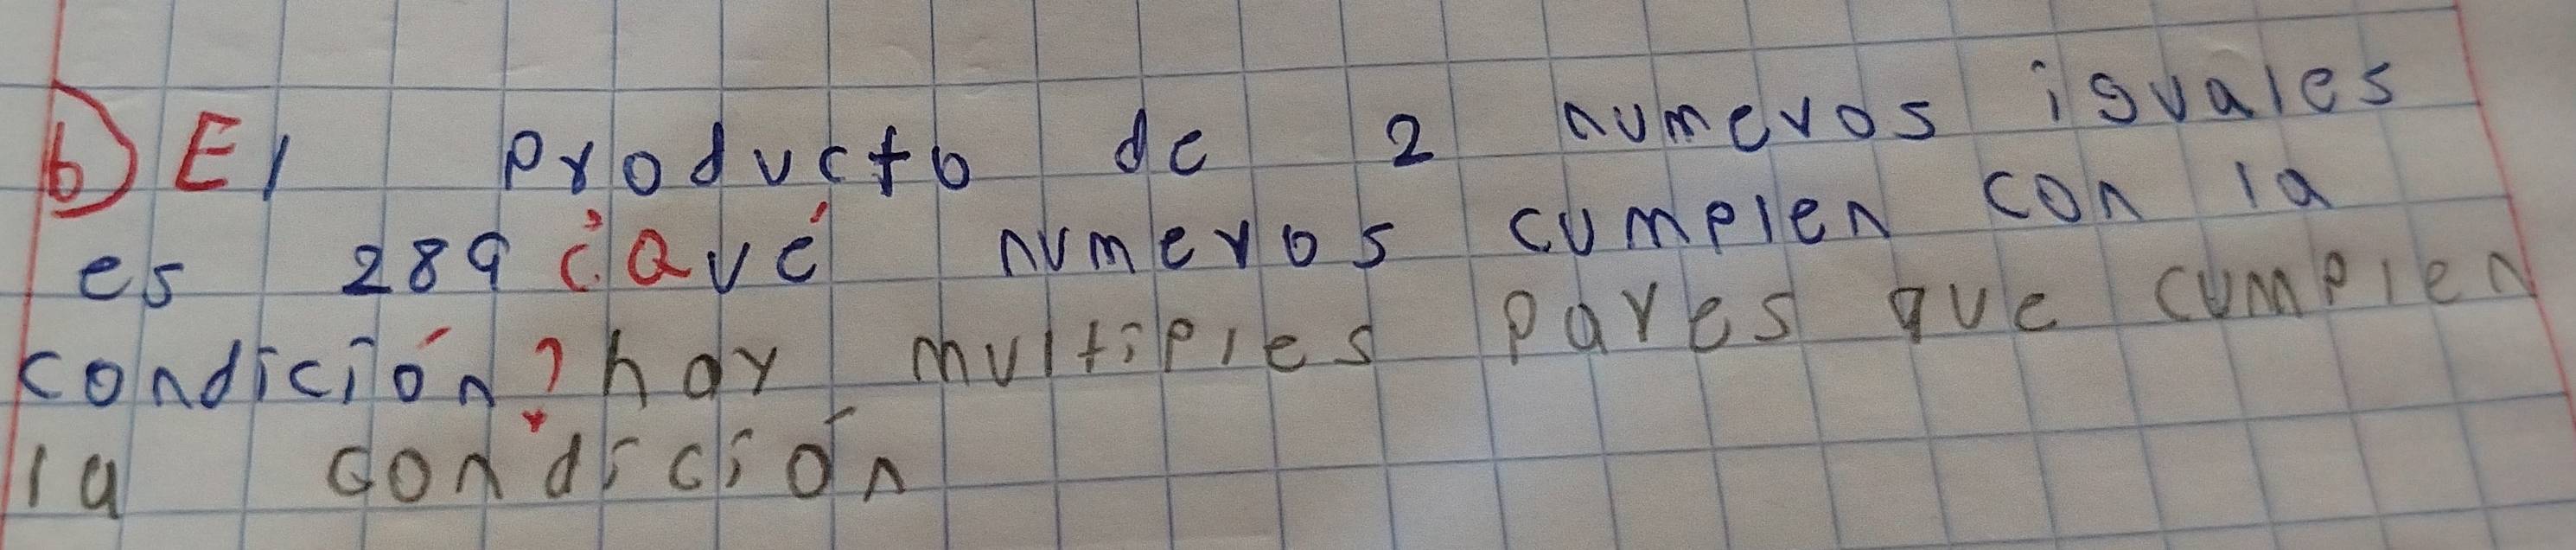 b) El producto de 2 numeros iguales
es 289 ¿Qué numeros cumplen con la
condición? hay multiples pares que cumplen
la condición